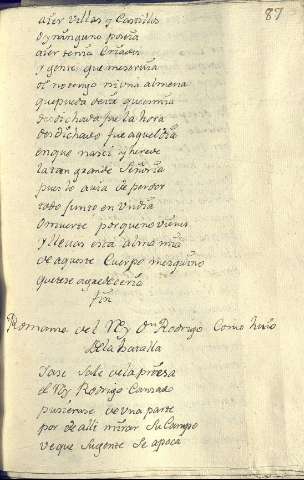 87
aier Villas y Castillos
oy ninguno poseia
aier tenia Criados
y gente que me servia
oi no tengo ni una almena
que pueda decir que es mia
desdichada fue la hora
desdichado fue aquel dia
en que naci y herede
la tan grande Señoria
pues lo avia de perder
todo junto en Un dia
O muerte por que no vienes
y llevas esta alma mia
de aqueste Cuerpo mesquino
que se te agradeceria
fin
Romance del Rey Dn Rodrigo Como huio
de la batalla
Ia se Sale de la priesa
el Rey Rodrigo Cansado
pusierase de Una parte
por de alli mirar Su Campo
ve que Su gente Se apoca